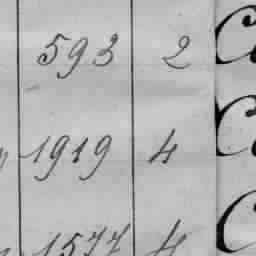 593 2
1919 4
1577 4